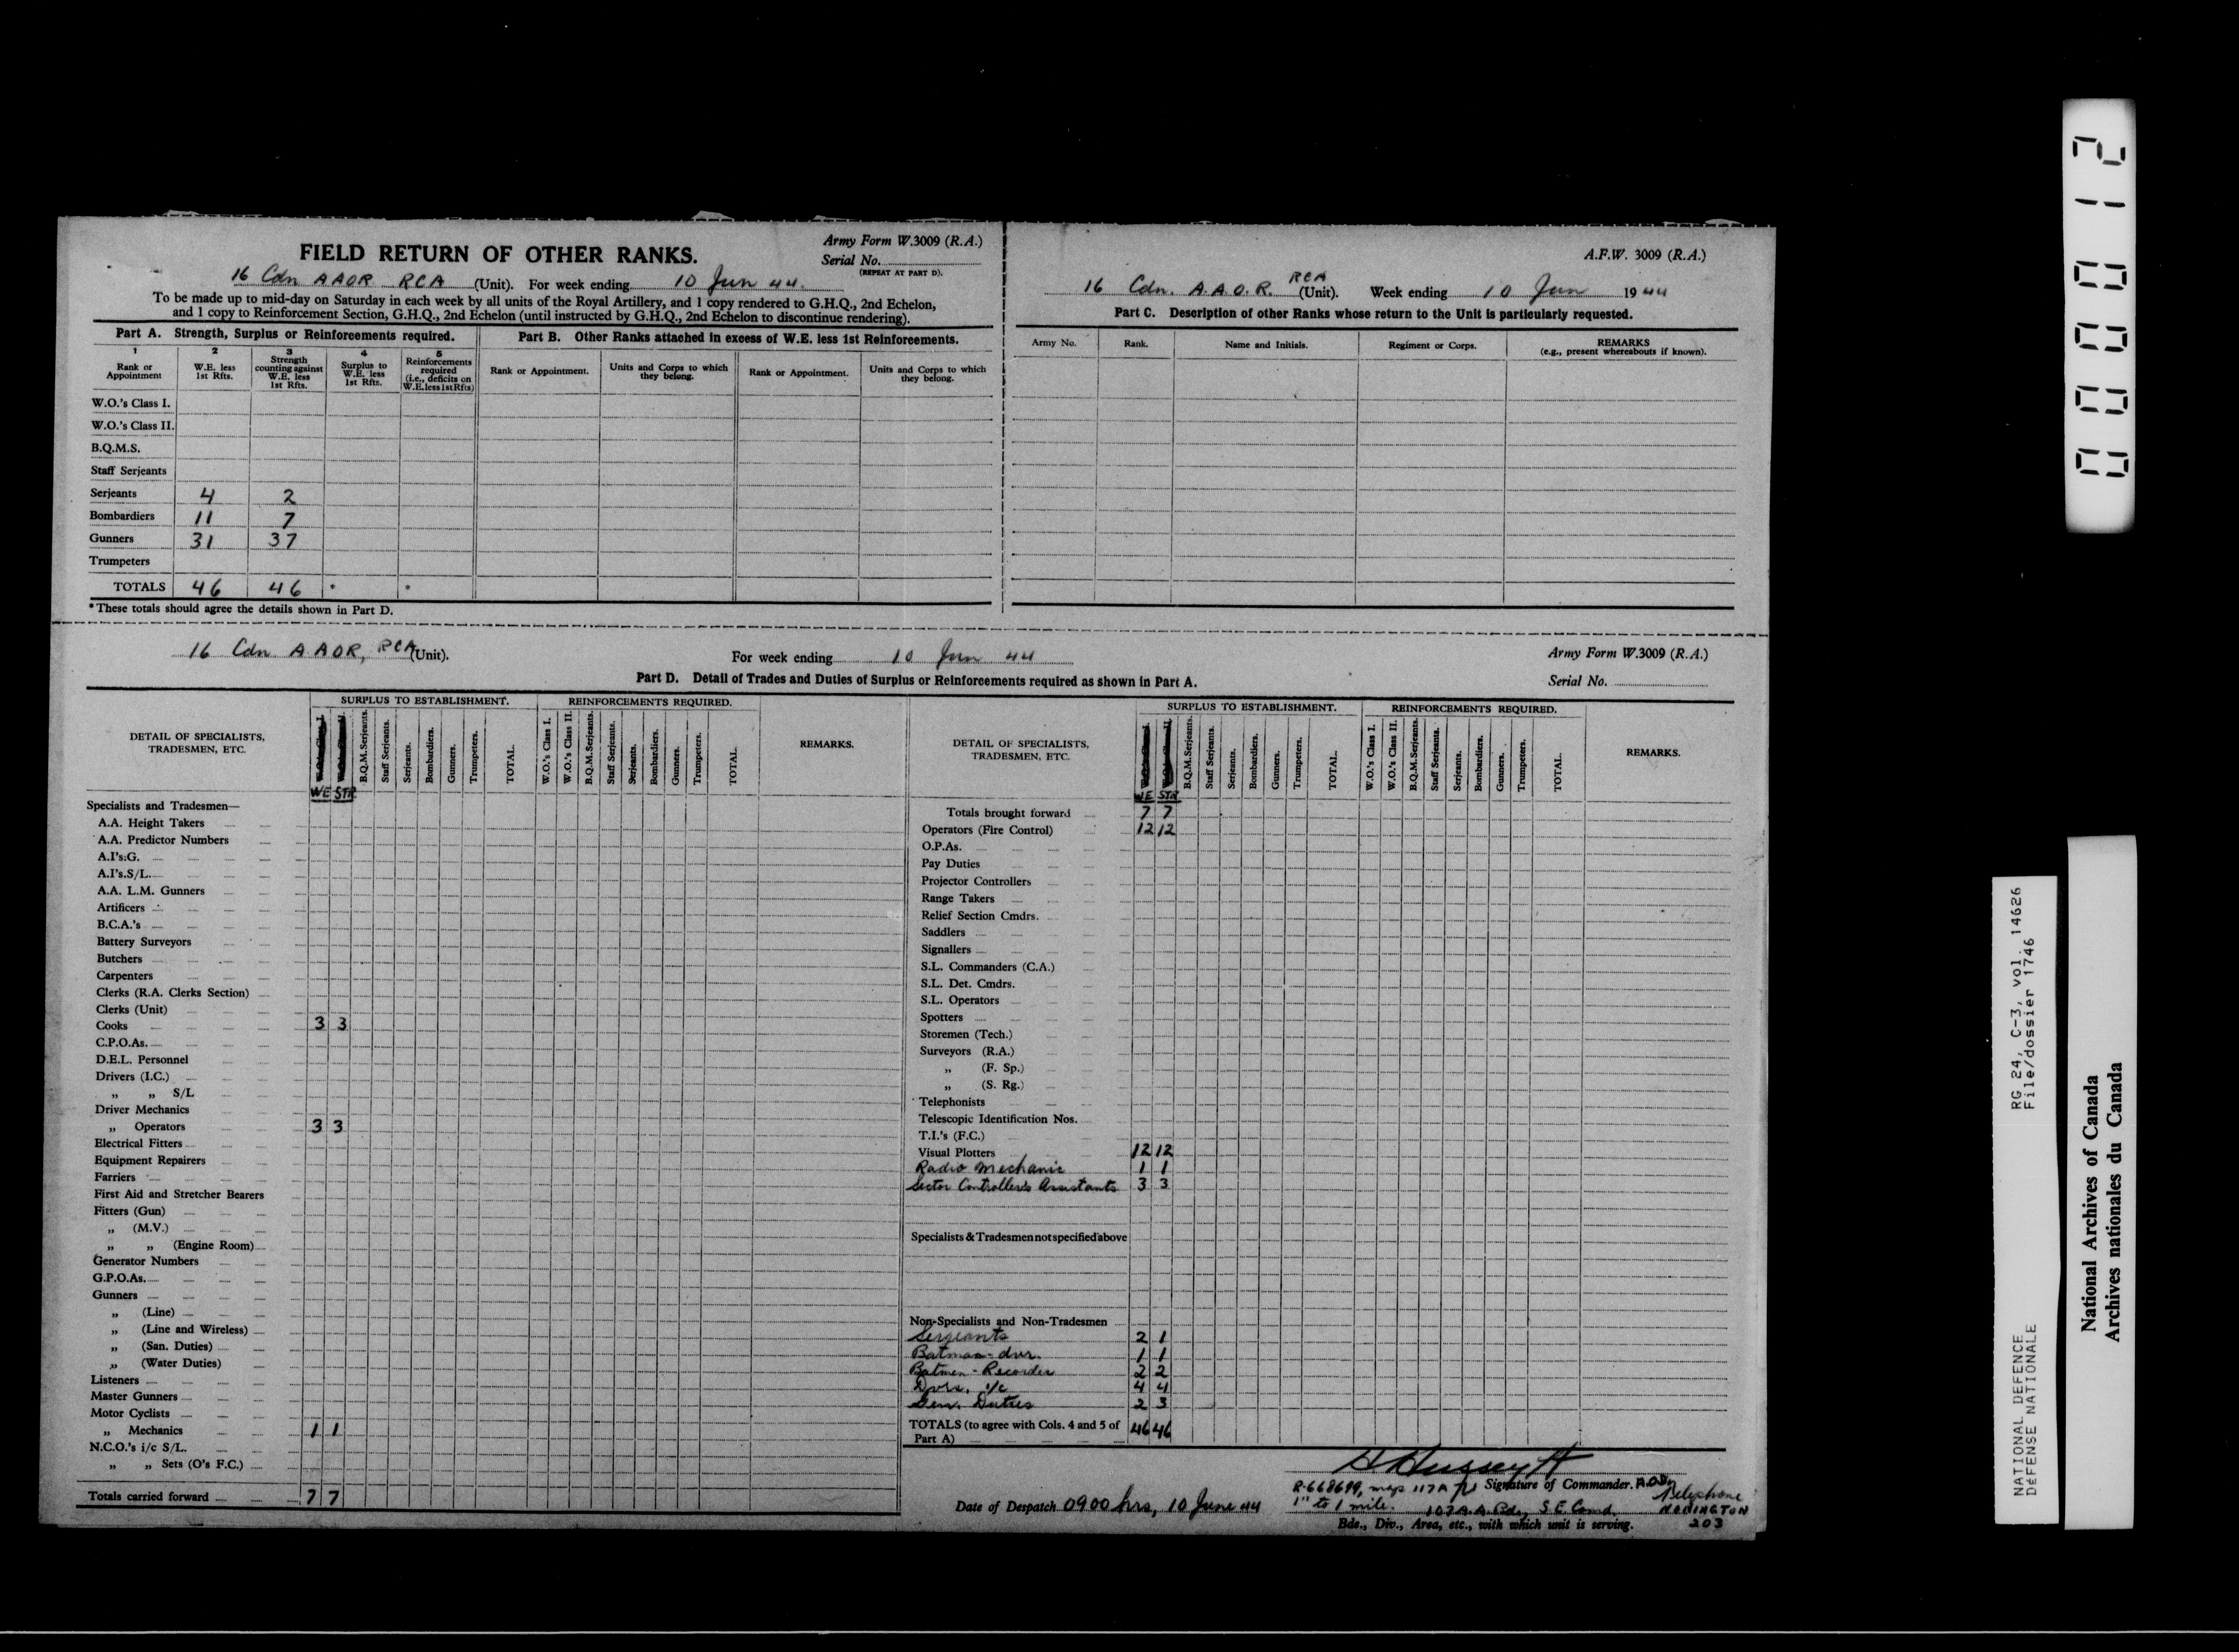 FIELD RETURN OF OTHER RANKS.
Army Form W.3009 (R.A.)
Serial No.
(REPEAT AT PART D).
16 Cdn AAOR RCA (Unit). For week ending 10 Jun 44.
To be made up to mid-day on Saturday in each week by all units of the Royal Artillery, and 1 copy rendered to G.H.Q., 2nd Echelon,
and 1 copy to Reinforcement Section, G.H.Q., 2nd Echelon (until instructed by G.H.Q., 2nd Echelon to discontinue rendering).
Part A. Strength, Surplus or Reinforcements required.
Part B. Other Ranks attached in excess of W.E. less 1st Reinforcements.
1 2 3 4 5
Rank or Appointment
W.E. less 1st Rfts.
Strength counting against W.E. less 1st Rfts.
Surplus to W.E. less 1st Rfts.
Reinforcements required (i.e., deficits on W.E. less 1st Rfts)
Rank or Appointment.
Units and Corps to which they belong.
Rank or Appointment.
Units and Corps to which they belong.
W.O.'s Class I.
W.O.'s Class II.
B.Q.M.S.
Staff Serjeants
Serjeants 4 2
Bombardiers 11 7
Gunners 31 37
Trumpeters
TOTALS 46 46 * *
*These totals should agree the details shown in Part D.
A.F.W. 3009 (R.A.)
16 Cdn. A.A.O.R. RCA (Unit). Week ending 10 Jun 1944
Part C. Description of other Ranks whose return to the Unit is particularly requested.
Army No.
Rank.
Name and Initials.
Regiment or Corps.
REMARKS
(e.g., present whereabouts if known).
16 Cdn AAOR, RCA (Unit).
For week ending 10 Jun 44
Army Form W.3009 (R.A.)
Part D. Detail of Trades and Duties of Surplus or Reinforcements required as shown in Part A.
Serial No.
DETAIL OF SPECIALISTS, TRADESMEN, ETC.
SURPLUS TO ESTABLISHMENT.
B.Q.M.Serjeants.
Staff Serjeants.
Serjeants.
Bombardiers.
Gunners.
Trumpeters.
TOTAL.
REINFORCEMENTS REQUIRED.
W.O.'s Class I.
W.O.'s Class II.
B.Q.M.Serjeants.
Staff Serjeants.
Serjeants.
Bombardiers.
Gunners.
Trumpeters.
TOTAL.
REMARKS.
WE STR
Specialists and Tradesmen—
A.A. Height Takers
A.A. Predictor Numbers
A.I's.G.
A.I's.S/L.
A.A. L.M. Gunners
Artificers
B.C.A.'s
Battery Surveyors
Butchers
Carpenters
Clerks (R.A. Clerks Section)
Clerks (Unit)
Cooks 3 3
C.P.O.As.
D.E.L. Personnel
Drivers (I.C.)
„ „ S/L
Driver Mechanics
„ Operators 3 3
Electrical Fitters
Equipment Repairers
Farriers
First Aid and Stretcher Bearers
Fitters (Gun)
„ (M.V.)
„ „ (Engine Room)
Generator Numbers
G.P.O.As.
Gunners
„ (Line)
„ (Line and Wireless)
„ (San. Duties)
„ (Water Duties)
Listeners
Master Gunners
Motor Cyclists
„ Mechanics 1 1
N.C.O.'s i/c S/L.
„ „ Sets (O's F.C.)
Totals carried forward 7 7
DETAIL OF SPECIALISTS, TRADESMEN, ETC.
SURPLUS TO ESTABLISHMENT.
B.Q.M.Serjeants.
Staff Serjeants.
Serjeants.
Bombardiers.
Gunners.
Trumpeters.
TOTAL.
REINFORCEMENTS REQUIRED.
W.O.'s Class I.
W.O.'s Class II.
B.Q.M.Serjeants.
Staff Serjeants.
Serjeants.
Bombardiers.
Gunners.
Trumpeters.
TOTAL.
REMARKS.
WE STR
Totals brought forward 7 7
Operators (Fire Control) 12 12
O.P.As.
Pay Duties
Projector Controllers
Range Takers
Relief Section Cmdrs.
Saddlers
Signallers
S.L. Commanders (C.A.)
S.L. Det. Cmdrs.
S.L. Operators
Spotters
Storemen (Tech.)
Surveyors (R.A.)
„ (F. Sp.)
„ (S. Rg.)
Telephonists
Telescopic Identification Nos.
T.I.'s (F.C.)
Visual Plotters 12 12
Radio Mechanic 1 1
Sector Controller's Assistants 3 3
Specialists & Tradesmen not specified above
Non-Specialists and Non-Tradesmen
Serjeants 2 1
Batman-dvr. 1 1
Batmen-Recorder 2 2
Dvrs. i/c 4 4
Gen. Duties 2 3
TOTALS (to agree with Cols. 4 and 5 of Part A) 46 46
Date of Despatch 0900 hrs, 10 June 44
H Hussey
Signature of Commander. AOD,
R.668699, map 117A
1" to 1 mile. 107 A.A. Bde, S E Comd.
Bde., Div., Area, etc., with which unit is serving.
Telephone
NONINGTON
203
000012
RG 24, C-3, vol. 14626
File/dossier 1746
NATIONAL DEFENCE
DEFENSE NATIONALE
National Archives of Canada
Archives nationales du Canada